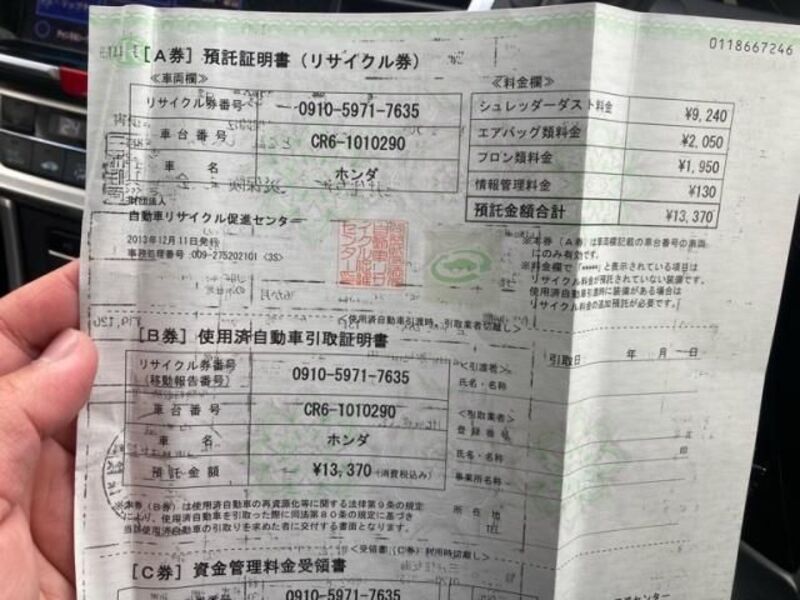 0118667246
[A券] 預託証明書（リサイクル券）
≪車両欄≫
リサイクル券番号 0910-5971-7635
車台番号 CR6-1010290
車名 ホンダ
≪料金欄≫
シュレッダーダスト料金 ¥9,240
エアバッグ類料金 ¥2,050
フロン類料金 ¥1,950
情報管理料金 ¥130
預託金額合計 ¥13,370
財団法人
自動車リサイクル促進センター
2013年12月11日発行
事務処理番号:009-275202101 <3S>
※本券（A券）は車両欄記載の車台番号の車両
にのみ有効です。
※料金欄で「*****」と表示されている項目は
リサイクル料金が預託されていない装備です。
使用済自動車引渡時に装備がある場合は
リサイクル料金の追加預託が必要です。
<使用済自動車引渡時、引取業者切離し>
[B券] 使用済自動車引取証明書
引取日 年 月 日
リサイクル券番号
(移動報告番号) 0910-5971-7635
車台番号 CR6-1010290
車名 ホンダ
預託金額 ¥13,370 (消費税込み)
<引渡者>
氏名・名称
<引取業者>
登録番号
氏名・名称 印
事業所名称
所在地
TEL
※本券（B券）は使用済自動車の再資源化等に関する法律第9条の規定
により、使用済自動車を引取った際に同法第80条の規定に基づき
当該使用済自動車の引取りを求めた者に交付する書面となります。
<受領書（C券）利用時切離し>
[C券] 資金管理料金受領書
0910-5971-7635